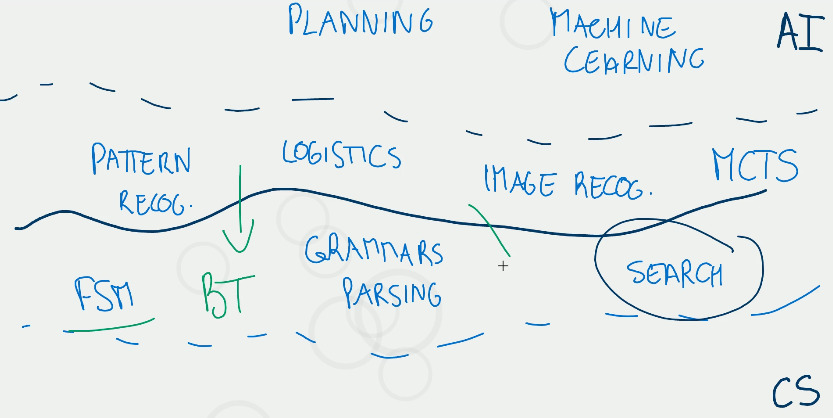 PLANNING
MACHINE
CEARNING
AI
PATTERN
RECOG.
LOGISTICS
IMAGE RECOG.
MCTS
FSM
BT
GRAMMARS
PARSING
SEARCH
CS